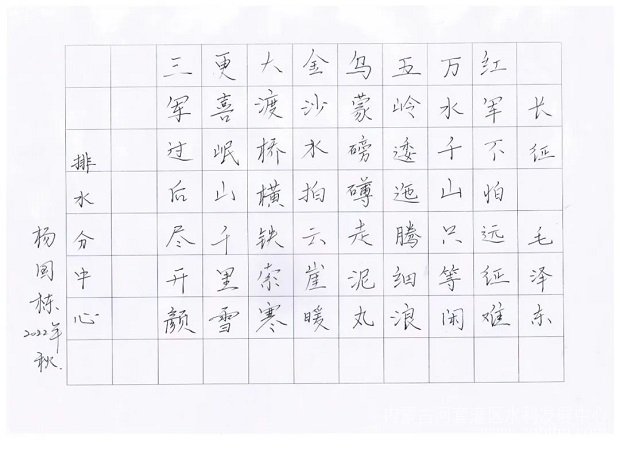 长征 毛泽东
红军不怕远征难
万水千山只等闲
五岭逶迤腾细浪
乌蒙磅礴走泥丸
金沙水拍云崖暖
大渡桥横铁索寒
更喜岷山千里雪
三军过后尽开颜
排水分中心
杨国栋 2022年秋.
内蒙古河套灌区水利发展中心